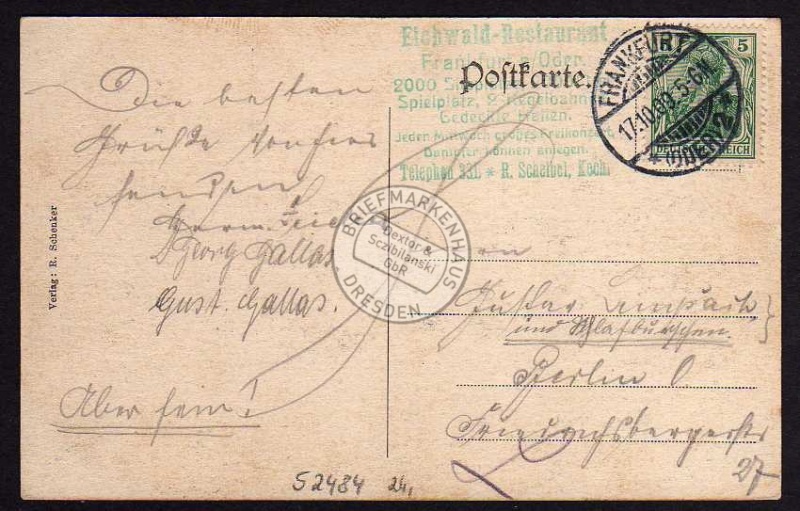 Eichwald-Restaurant
Frankfurt a/Oder.
2000
Spielplatz, 2 Kegelbahnen
Gedeckte Hallen.
Jeden Mittwoch großes Freikonzert
Dampfer können anlegen.
Telephon 331. * R. Scheibel, Koch.
Postkarte.
FRANKFURT
17.10.09. 5-6N.
* (ODER) 2 *
5
DEUTSCHES REICH
Die besten
Grüße von hier
senden
Georg Gallas.
Gust. Gallas.
Aber fein!
An
Gustav
und Schlafburschen.
Berlin O.
Friedrichsbergerstr
27
Verlag: R. Schenker
BRIEFMARKENHAUS
Dexter &
Sczibilanski
GbR
DRESDEN
52484 24,